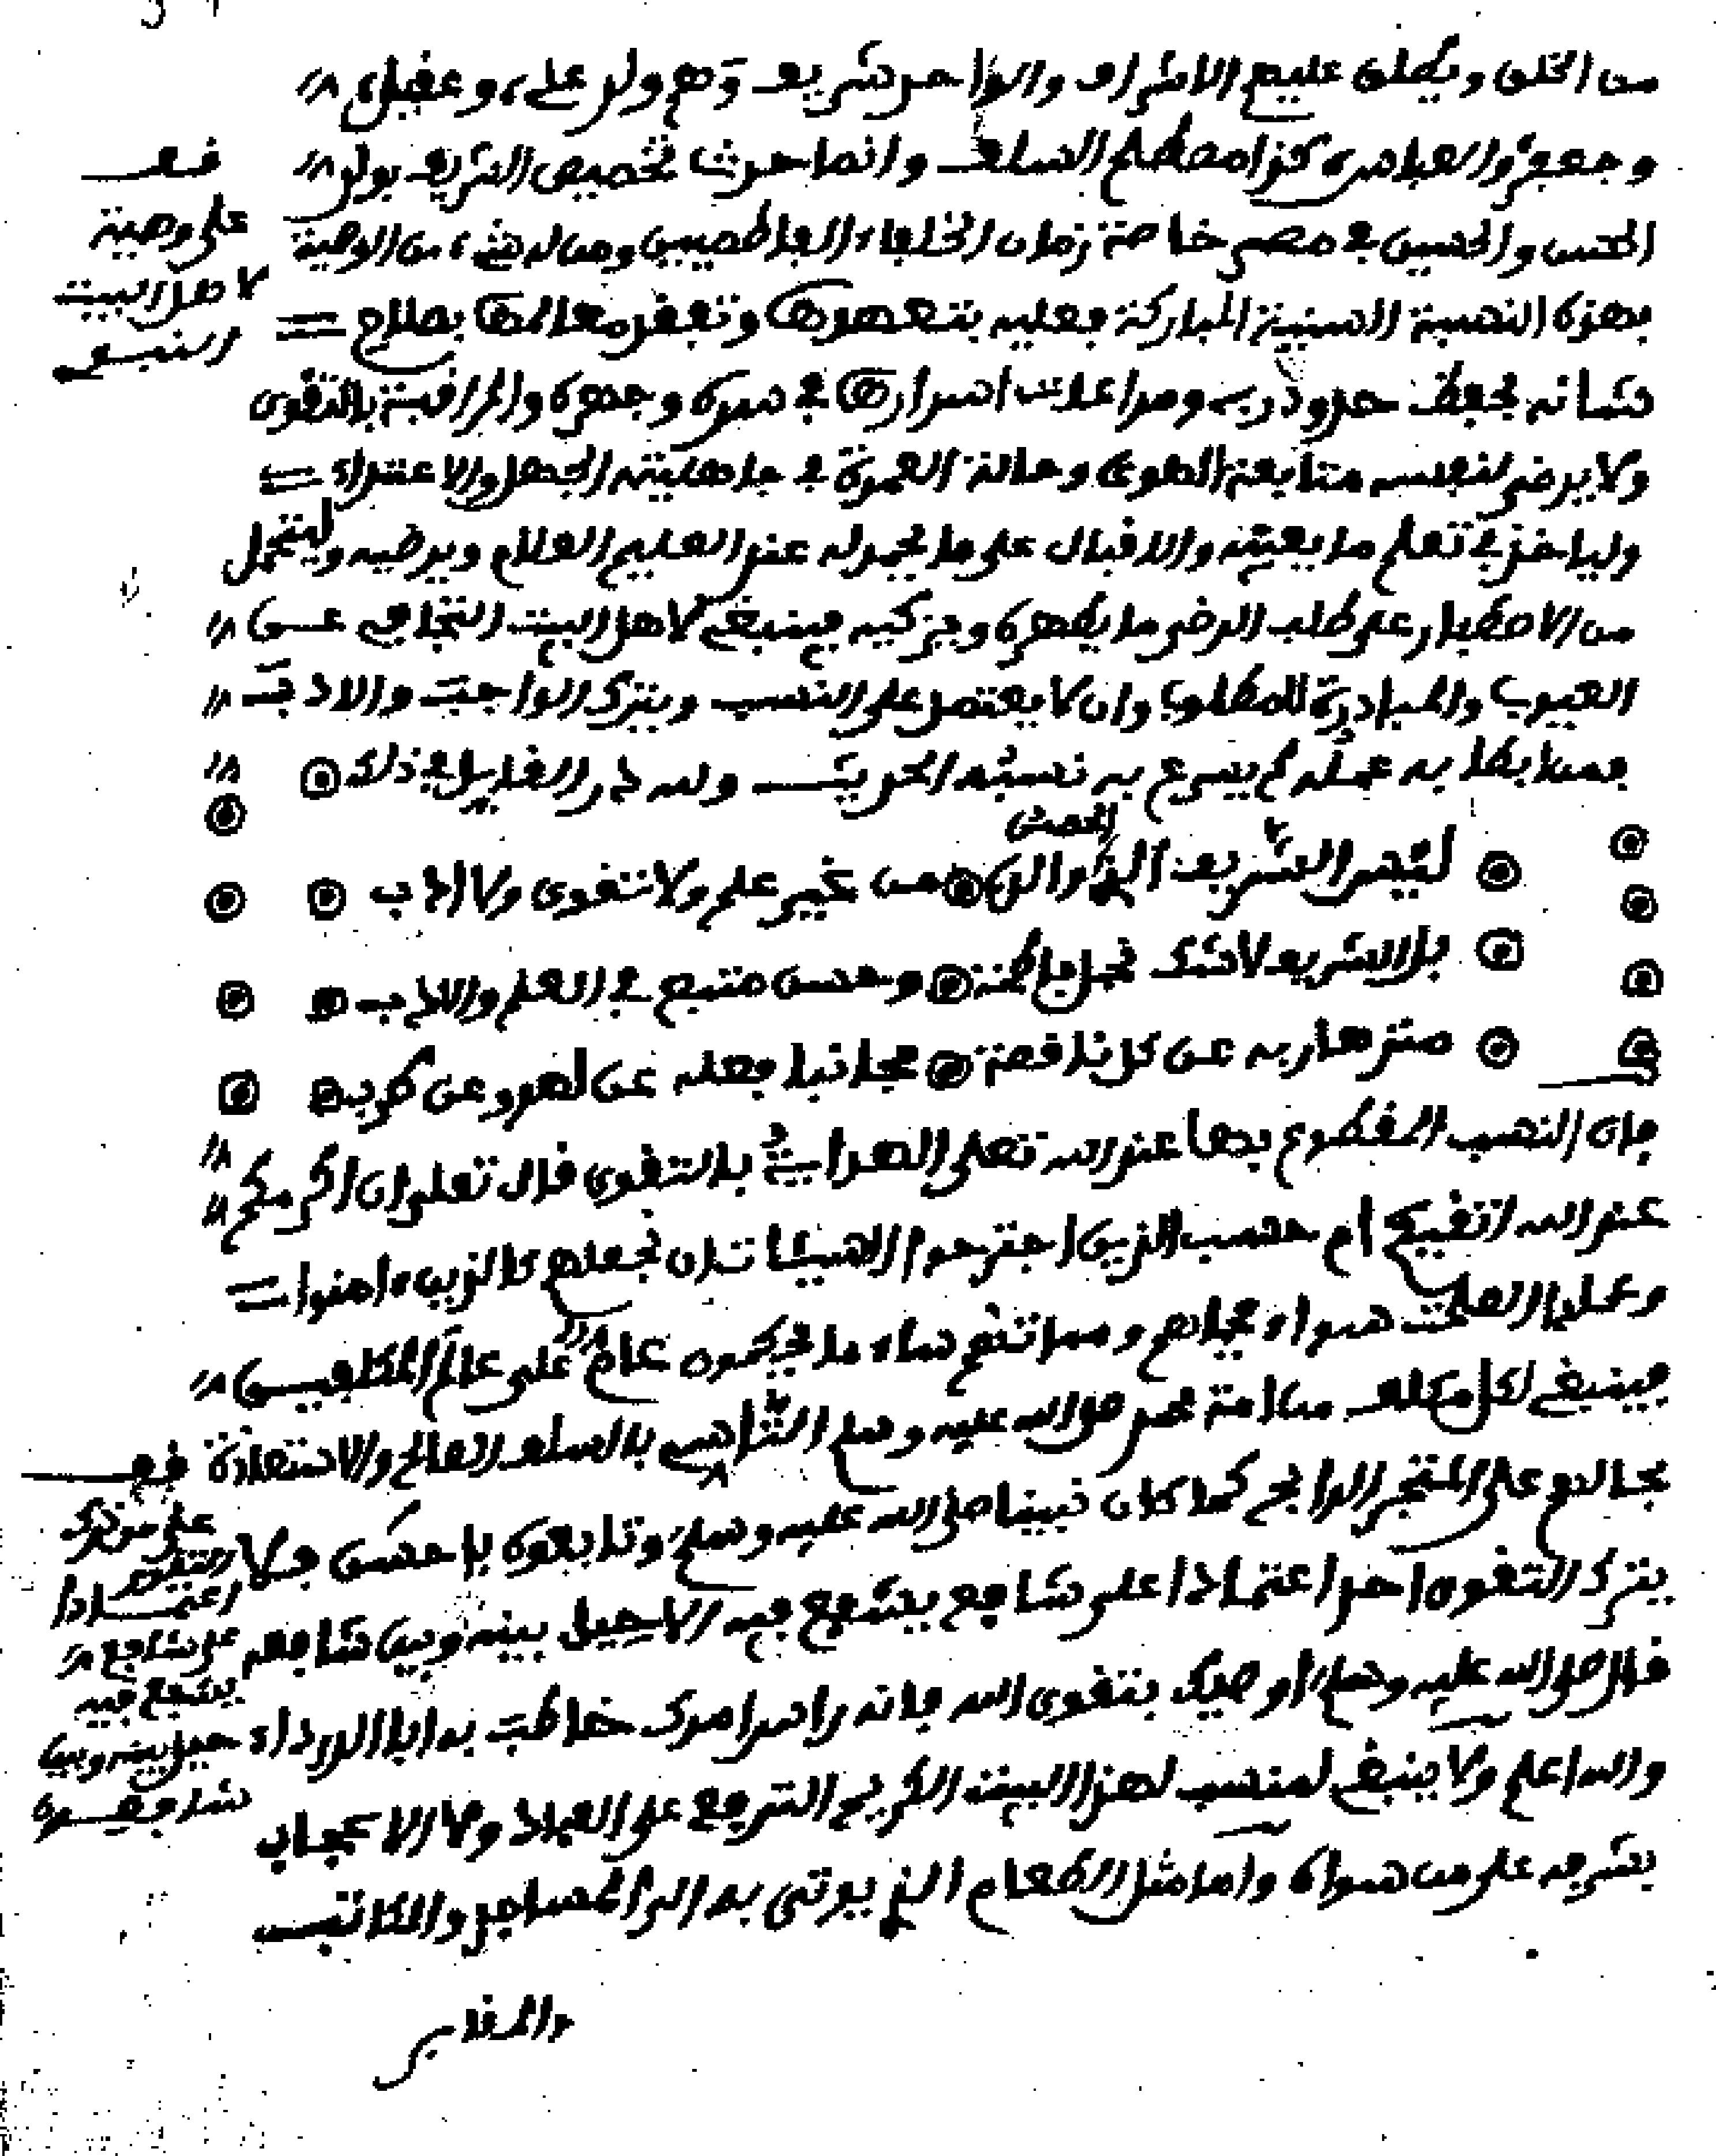 من الخلق ويطلق عليهم الاشراف والواحد شريف وهم ولد علي وعقيل
وجعفر والعباس كذا مصطلح السلف وانما حدث تخصيص الشريف بولد
الحسن والحسين في مصر خاصة زمان الخلفاء الفاطميين ومن
بهذه النسبة السنية المباركة فعليه بتعهدها وتفقد معالمها بصلاح
شانه بحفظ حدود ربه ومراعات اسرارها في سره وجهره والمراقبة بالتقوى
ولا يرضى لنفسه متابعة الهوى وحالة الغمرة في جاهلية الجهل والاغترار
ولياخذ في تعلم ما يعينه والاقبال على ما يحمد له عند العليم العلام ويرضيه وليتحمل
من الاصطبار على طلب الرضى ما يطهره ويزكيه فينبغي لاهل البيت التجافي عن
العيوب والمبادرة للمطلوب وان لا يعتمد على النسب ويترك الواجب والادب
فمن ابطا به عمله لم يسرع به نسبه الحديث ولله در القايل في ذلك
ليس الشريف الذي من غير علم ولا تقوى ولا ادب
بل الشريف لا شك نجل فاطمة وحسن متبع في العلم والادب
منزها ربه عن كل ناقصة مجانبا فعله عن لهو وعن طرب
فان النسب المقطوع بها عند الله تعلى بالتقوى قال تعلى ان اكرمكم
عند الله اتقيكم ام حسب الذين اجترحوا السيئات ان نجعلهم كالذين ءامنوا
وعملوا الصلحت سواء محياهم ومماتهم ساء ما يحكمون عام على عالم المكلفين
فينبغي لكل مكلف من امة محمد صلى الله عليه وسلم التاسي بالسلف الصالح والاستفادة
بحالهم على المتجر الرابح كما كان نبينا صلى الله عليه وسلم وتابعوه باحسن فلا
يترك التقوى احد اعتمادا على شافع يشفع فيه الا حيل بينه وبين شافعه
قال صلى الله عليه وسلم اوصيك بتقوى الله فانه راس امرك خاطب به ابا الدرداء
والله اعلم ولا ينبغي لمنسب لهذا البيت الكريم الترفع على العباد ولا الاعجاب
بشرفه على من سواه واما مثل الطعام الذي يوتى به الى المساجد والمكاتب
والمقابر
قف
على وصية
لاهل البيت
النبوي
قف
على من ترك
التقوى
اعتمادا
على شافع
يشفع فيه
حيل بينه وبين
شافعه